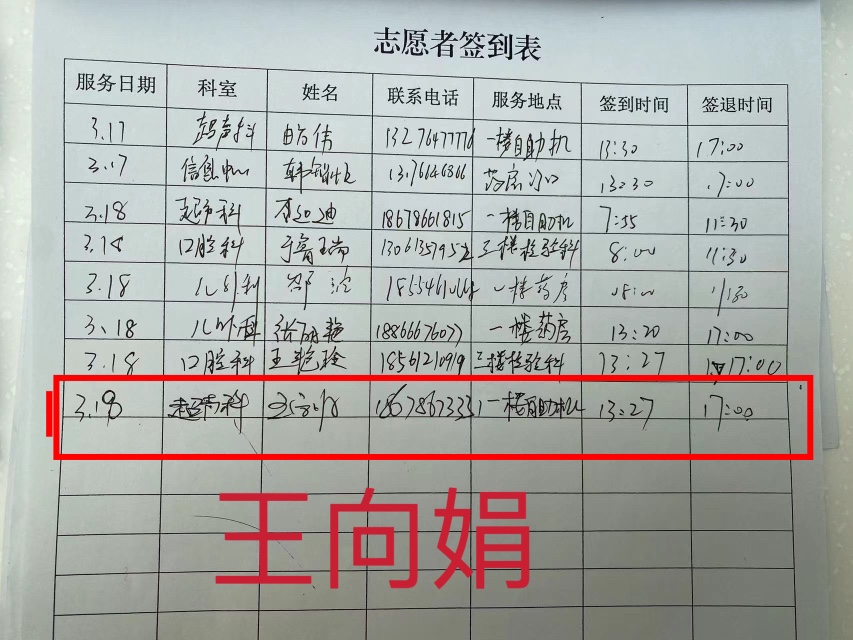 志愿者签到表
服务日期 科室 姓名 联系电话 服务地点 签到时间 签退时间
3.17 超声科 伟 一楼自助机 13:30 17:00
3.17 信息中心 韩 药房 13:30 17:00
3.18 超声科 迪 18678661815 一楼自助机 7:55 11:30
3.18 口腔科 于 瑞 三楼检验科 8:00 11:30
3.18 儿外科 邹 一楼药房 08:00 11:30
3.18 儿外科 张 艳 18866676077 一楼药房 13:20 17:00
3.18 口腔科 王艳玲 18561210919 三楼检验科 13:27 17:00
3.18 超声科 王向娟 18678673331 一楼自助机 13:27 17:00
王向娟